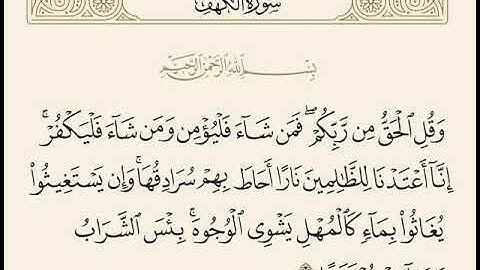 سُورَةُ الْكَهْفِ
بِسْمِ اللَّهِ الرَّحْمَٰنِ الرَّحِيمِ
وَقُلِ ٱلْحَقُّ مِن رَّبِّكُمْ ۖ فَمَن شَآءَ فَلْيُؤْمِن وَمَن شَآءَ فَلْيَكْفُرْ ۚ
إِنَّآ أَعْتَدْنَا لِلظَّٰلِمِينَ نَارًا أَحَاطَ بِهِمْ سُرَادِقُهَا ۚ وَإِن يَسْتَغِيثُوا۟
يُغَاثُوا۟ بِمَآءٍ كَٱلْمُهْلِ يَشْوِى ٱلْوُجُوهَ ۚ بِئْسَ ٱلشَّرَابُ